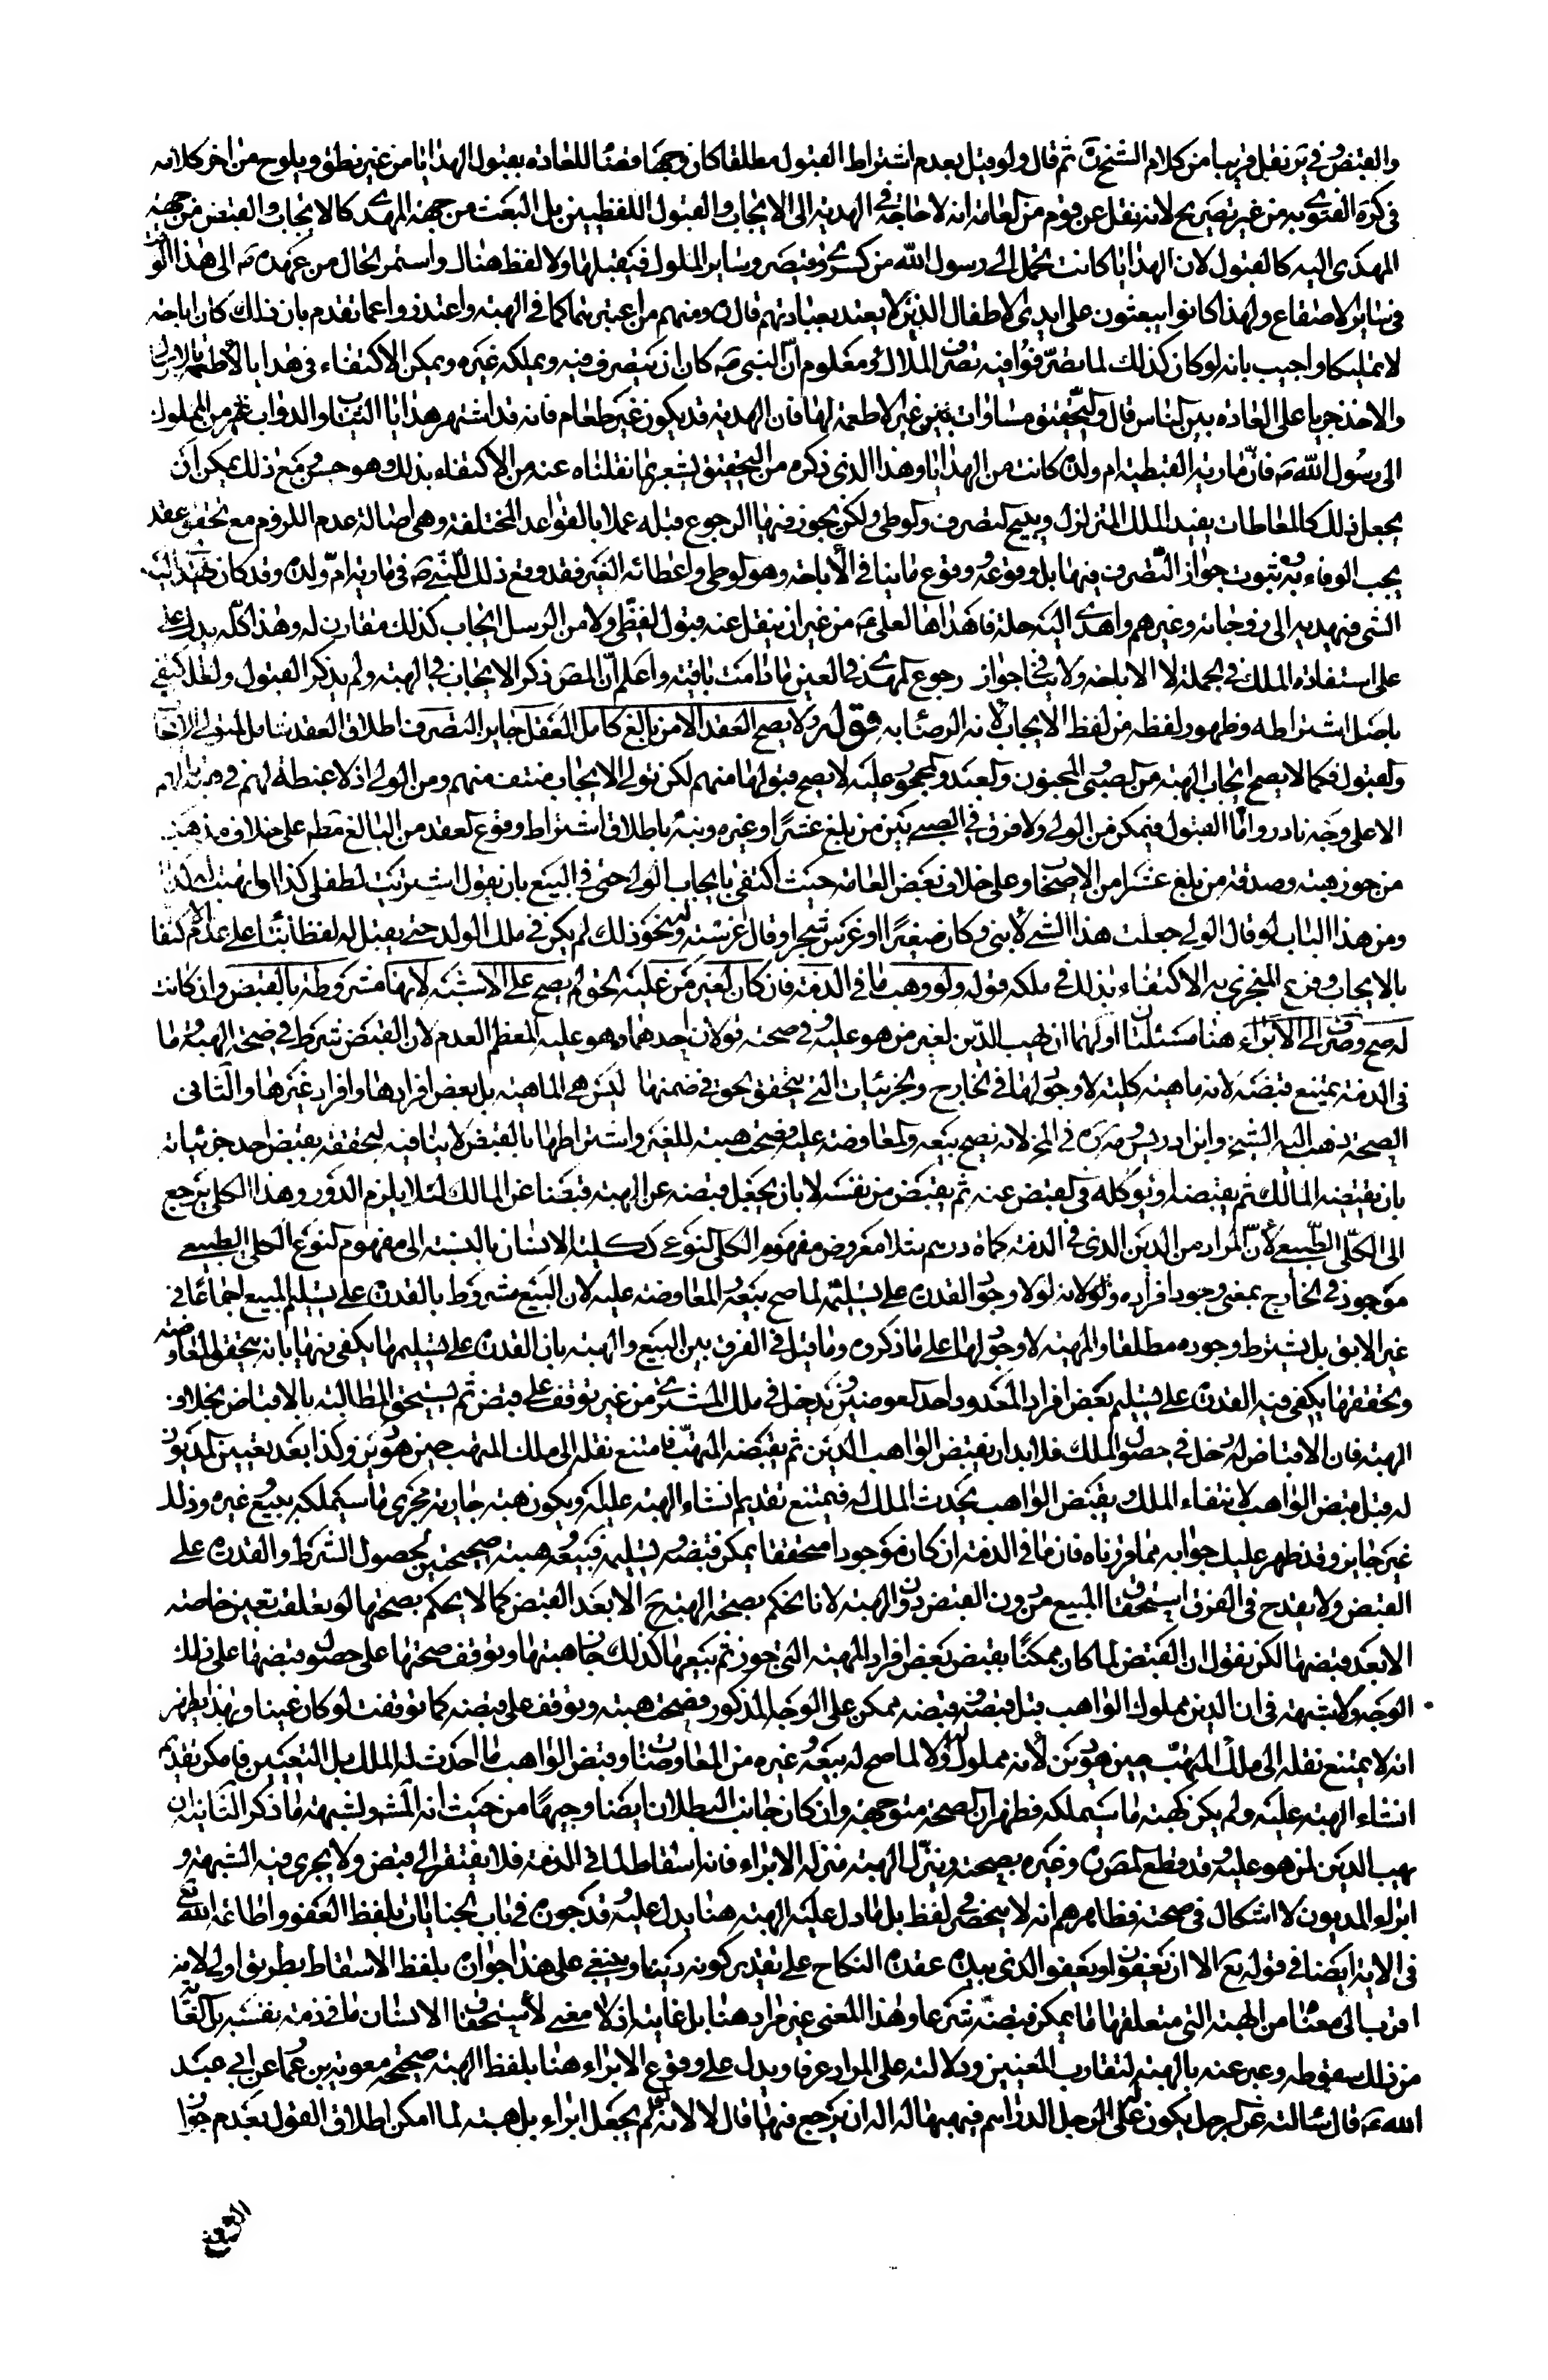 والقبض في نقل قريبا من كلام الشيخ ثم قال ولو قيل بعدم اشتراط القبول مطلقا كان وجها قضاءا للعادة بقبول الهدايا من غير نطق ويلوح من اخر كلامه
في كره الفتوى به من غير تصريح لانه نقل عن قوم من العامة انه لا حاجة في الهدية الى الايجاب والقبول اللفظيين بل البعث من جهة المهدي كالايجاب والقبض من جهة
المهدى اليه كالقبول لان الهدايا كانت تحمل الى رسول الله من كسرى وقيصر وساير الملوك فيقبلها ولا لفظ هناك واستمر الحال من عهده ص الى هذا الوقت
في ساير الاصقاع ولهذا كانوا يبعثون على ايدي الاطفال الذين لا يعتد بعبادتهم قال ومنهم من اعتبرهما كما في الهبة واعتذروا عما تقدم بان ذلك كان اباحة
لا تمليكا واجيب بانه لو كان كذلك لما تصرفوا فيه تصرف الملاك ومعلوم ان النبي ص كان يتصرف فيه ويملكه غيره ويمكن الاكتفاء في هدايا الاطعمة بالارسال
والاخذ جريا على العادة بين الناس قال والتحقيق مساوات غير الاطعمة لها فان الهدية قد يكون غير طعام فانه قد اشتهر هدايا الثياب والدواب من الملوك
الى رسول الله ص فان مارية القبطية ام ولده كانت من الهدايا وهذا الذي ذكره من التحقيق يشعر بما نقلناه عنه من الاكتفاء بذلك وهو حسن ومع ذلك يمكن ان
يجعل ذلك كالمعاطات يفيد الملك المتزلزل ويبيح التصرف والوطي ولكن يجوز فيها الرجوع قبله عملا بالقواعد المختلفة وهي اصالة عدم اللزوم مع تحقق عقد
يجب الوفاء به وثبوت جواز التصرف فيها بل وقوعه ووقوع ما ينافي الاباحة وهو الوطي واعطائه الغير فقد وقع ذلك للنبي ص في مارية ام ولده وقد كان يهدى اليه
الشي فيهديه الى زوجاته وغيرهم واهدى اليه حلة فاهداها لعلي ع من غير ان ينقل عنه قبول لفظي ولا من الرسل ايجاب كذلك مقارن له وهذا كله يدل
على استفادة الملك في الجملة لا الاباحة ولا ينافي جواز رجوع المهدي في العين ما دامت باقية واعلم ان المص ذكر الايجاب في الهبة ولم يذكر القبول ولعله اكتفى
باصل اشتراطه وظهور لفظه من لفظ الايجاب لانه الرضا به قوله ولا يصح العقد الا من بالغ كامل العقل جايز التصرف اطلاق العقد شامل لمتولي الايجاب
والقبول فكما لا يصح ايجاب الهبة من الصبي والمجنون والعبد والمحجور عليه لا يصح قبولها منهم لكن تولي الايجاب منتف منهم ومن الولي اذ لا غبطة لهم في
الا على وجه نادر واما القبول فيمكن من الولي ولا فرق في الصبي بين من بلغ عشرا وغيره ونبه باطلاق اشتراط وقوع العقد من البالغ مطلقا على خلاف
من جوز هبته وصدقته من بلغ عشرا من الاصحاب وعلى خلاف بعض العامة حيث اكتفى بايجاب الولي حتى في البيع بان يقول اشتريت لطفلي كذا او
ومن هذا الباب لو قال الولي جعلت هذا الشي لابني وكان صغيرا او غرس شجرا وقال غرسته له ونحو ذلك لم يكن في ملك الولد حتى يقبل له لفظا بناء على عدم الاكتفا
بالايجاب وفرع المجزي به الاكتفاء بذلك في ملكه قوله ولو وهب ما في الذمة فان كان لغير من عليه الحق لم يصح على الاشبه لانها مشروطة بالقبض وان كانت
له صح وصرف الى الابراء هنا مسئلتان اوليهما ان يهب الدين لغير من هو عليه وفي صحته قولان احدهما وهو عليه المعظم العدم لان القبض شرط في صحة الهبة وما
في الذمة يمتنع قبضه لانه ماهية كلية لا وجود لها في الخارج والجزئيات التي يتحقق الحق في ضمنها ليس هي الماهية بل بعض افرادها وافراد غيرها والثاني
الصحة ذهب اليه الشيخ وابن ادريس والعلامة في المخ لانه يصح بيعه والمعاوضة عليه فصحت هبته للغير واشتراطها بالقبض لا ينافيه لتحققه بقبض احد جزئياته
بان يقبضه المالك ثم يقبضه او يوكله في القبض عنه ثم يقبض من نفسه لا بان يجعل قبضه عن الهبة قبضا عن المالك لئلا يلزم الدور وهذا الكلي يرجع
الى الكلي الطبيعي لان المراد من الدين الذي في الذمة كماة درهم مثلا معروض مفهوم الكلي النوعي ككلية الانسان بالنسبة الى مفهوم النوع الكلي الطبيعي
موجود في الخارج بمعنى وجود افراده ولانه لولا وجود القدرة على تسليمه لما صح بيعه والمعاوضة عليه لان البيع مشروط بالقدرة على تسليم المبيع اجماعا في
غير الابق بل يشترط وجوده مطلقا والمهية لا وجود لها على ما ذكروه وما قيل في الفرق بين البيع والهبة بان القدرة على تسليمها يكفي فيها بانه يتحقق المعاوضة
وتحققها يكفي فيه القدرة على تسليم بعض افراد المعدود احد العوضين يدخل في ملك المشتري من غير توقف على قبض ثم يستحق المطالبة بالاقباض بخلاف
الهبة فان الاقباض له دخل في حصول الملك فلا بد ان يقبض الواهب الدين ثم يقبضه المتهب فامتنع نقله الى ملك المتهب حين هو دين وكذا بعد تعيين المديون
له قبل قبض الواهب لانتفاء الملك بقبض الواهب يحدث الملك له فيمتنع تقديم انشاء الهبة عليه ويكون هبته جارية مجرى ما سيملكه ببيع غيره وذلك
غير جايز وقد ظهر عليك جوابه مما قررناه فان ما في الذمة ان كان موجودا متحققا يمكن قبضه وتسليمه فبيعه وهبته صحيحتين لحصول الشرط والقدرة على
القبض ولا يقدح في الفرق استحقاق المبيع من دون القبض دون الهبة لانا نحكم بصحة الهبة ح الا بعد القبض كما لا يحكم بصحتها لو تعلقت بعين خاصة
الا بعد قبضها لكن نقول ان القبض لما كان ممكنا بقبض بعض افراد المهية التي جوز ثم بيعها كذلك جاز هبتها وتوقف صحتها على حصول قبضها على ذلك
الوجه ولا شبهة في ان الدين مملوك الواهب قبل قبضه وقبضه ممكن على الوجه المذكور فصحت هبته وتوقف على قبضه كما توقفت لو كان عينا وبهذا يظهر
انه لا يمتنع نقله الى ملك المتهب حين هو دين لانه مملوك له والا لما صح له بيعه وغيره من المعاوضات وقبض الواهب ما احدث له الملك بل التعيين فامكن تقديم
انشاء الهبة عليه ولم يكن كهبة ما سيملكه فظهر ان الصحة متوجهة وان كان جانب البطلان ايضا وجيها من حيث انه المشهور لشبهة ما ذكر الثانية ان
يهب الدين لمن هو عليه وقد قطع المص وغيره بصحته وينزل الهبة منزلة الابراء فانه اسقاط لما في الذمة فلا يفتقر الى قبض ولا يجري فيه الشبهة و
ابراء المديون لا اشكال في صحته وظاهرهم انه لا ينحصر في لفظ بل ما دل عليه الهبة هنا يدل عليه وقد جوزه في باب الجنايات بلفظ العفو واطلاقه الله تع
في الاية ايضا في قوله تع الا ان يعفون او يعفو الذي بيده عقدة النكاح على تقدير كونه دينا وينبغي على هذا جوازه بلفظ الاسقاط بطريق اولى لانه
اقرب الى معناه من الهبة التي متعلقها ما يمكن قبضه شرعا وهذا المعنى غير مراد هنا بل غايته اذ لا معنى لاستحقاق الانسان ما في ذمته بنفسه بل الغاية
من ذلك سقوطه وعبر عنه بالهبة لتقارب المعنيين ودلالته على المراد عرفا ويدل على وقوع الابراء هنا بلفظ الهبة صحيحة معوية بن عمار عن ابي عبد
الله ع قال سالته عن الرجل يكون له على الرجل الدراهم فيهبها له اله ان يرجع فيها قال لا لانه لو لم يجعل ابراء بل هبة لما امكن اطلاق القول بعدم جواز